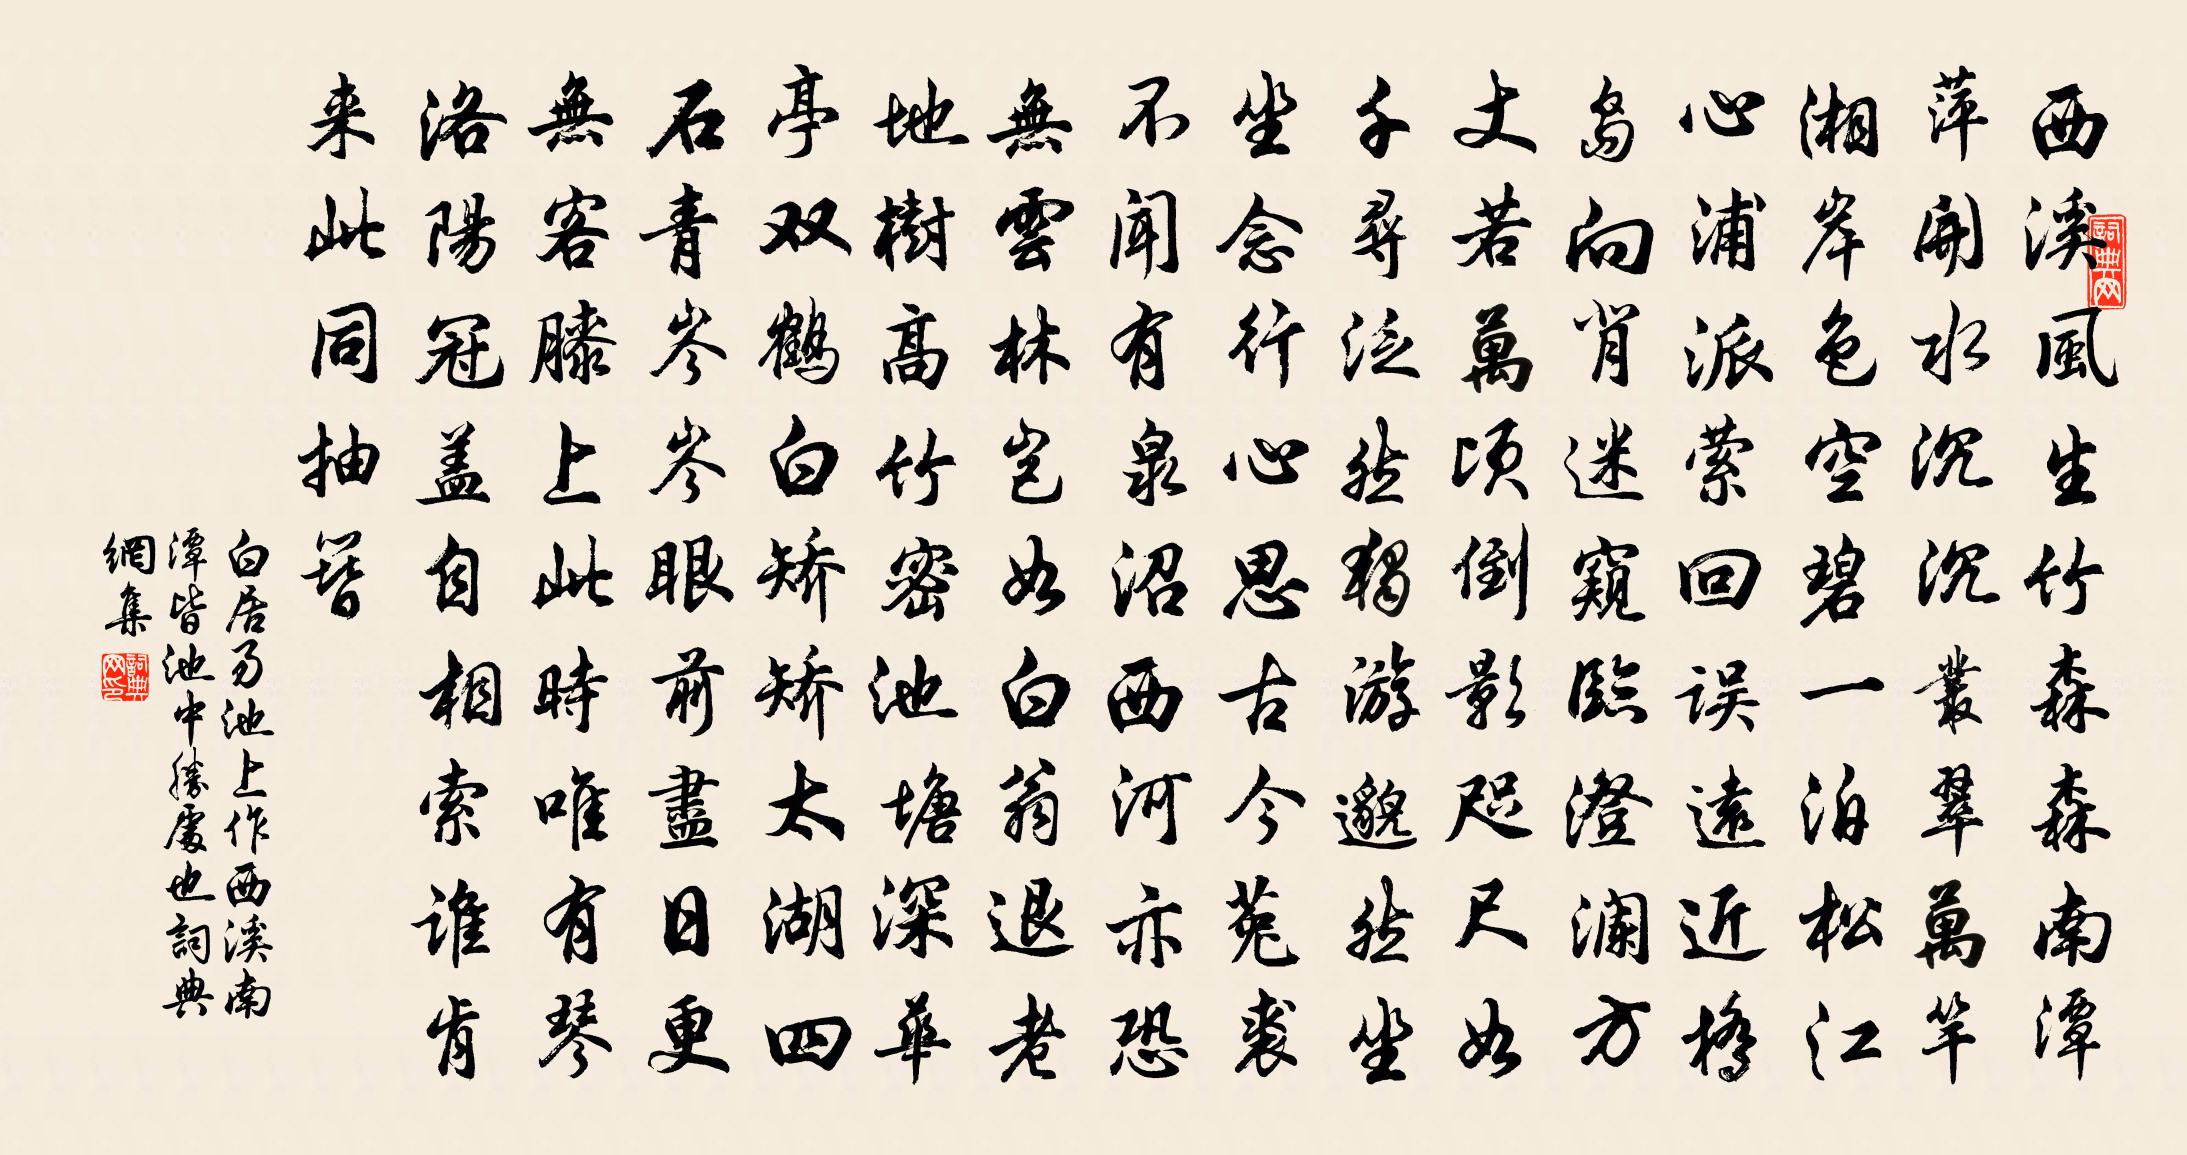 西溪風生竹森森南潭
萍開水沉沉叢翠萬竿
湘岸色空碧一泊松江
心浦派萦回误遠近橋
島向背迷窺臨澄瀾方
丈若萬頃倒影咫尺如
千尋泛然獨游邈然坐
坐念行心思古今菟裘
不聞有泉沼西河亦恐
無雲林豈如白翁退老
地樹高竹密池塘深華
亭双鶴白矯矯太湖四
石青岑岑眼前盡日更
無客膝上此時唯有琴
洛陽冠盖自相索誰肯
来此同抽簪
白居易池上作西溪南
潭皆池中勝處也詞典
網集
詞典网
詞典网印